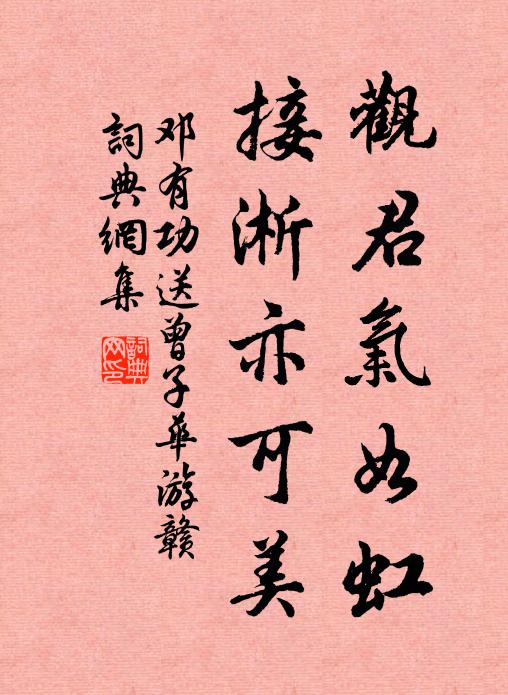 觀君氣如虹
接淅亦可美
邓有功送曾子華游贛
詞典網集
詞典网印